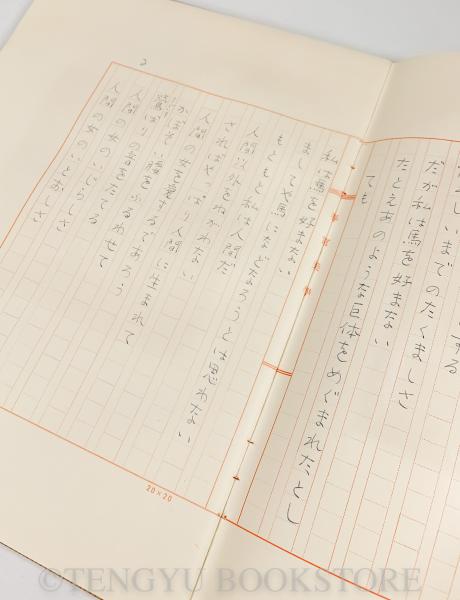 する
しいまでのたくましさ
だが私は馬を好まない
たとえあのような巨体をめぐまれたとし
ても
2
私は馬を好まない
ましてや馬になどなろうとは思わない
もともと私は人間だ
人間以外をねがわない
さればやっぱり人間に生まれて
人間の女を愛するであろう
かぼそい腰をふるわせて
鶯ばりの音をたてる
人間の女のいじらしさ
人間の女のいとおしさ
20×20
©TENGYU BOOKSTORE